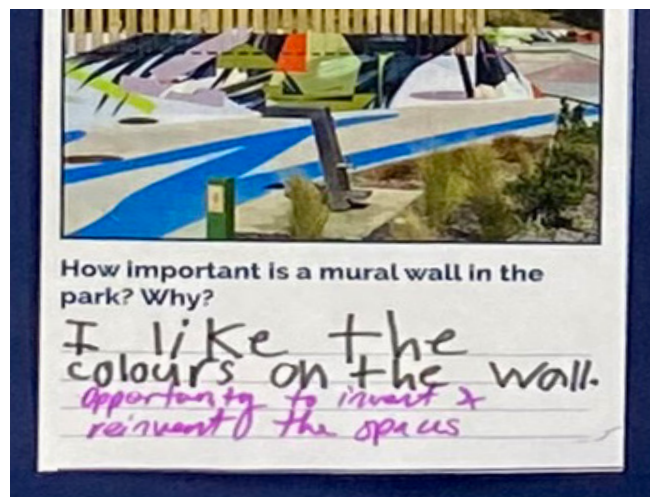 How important is a mural wall in the
park? Why?
I like the
colours on the wall.
Opportunity to invent &
reinvent the spaces